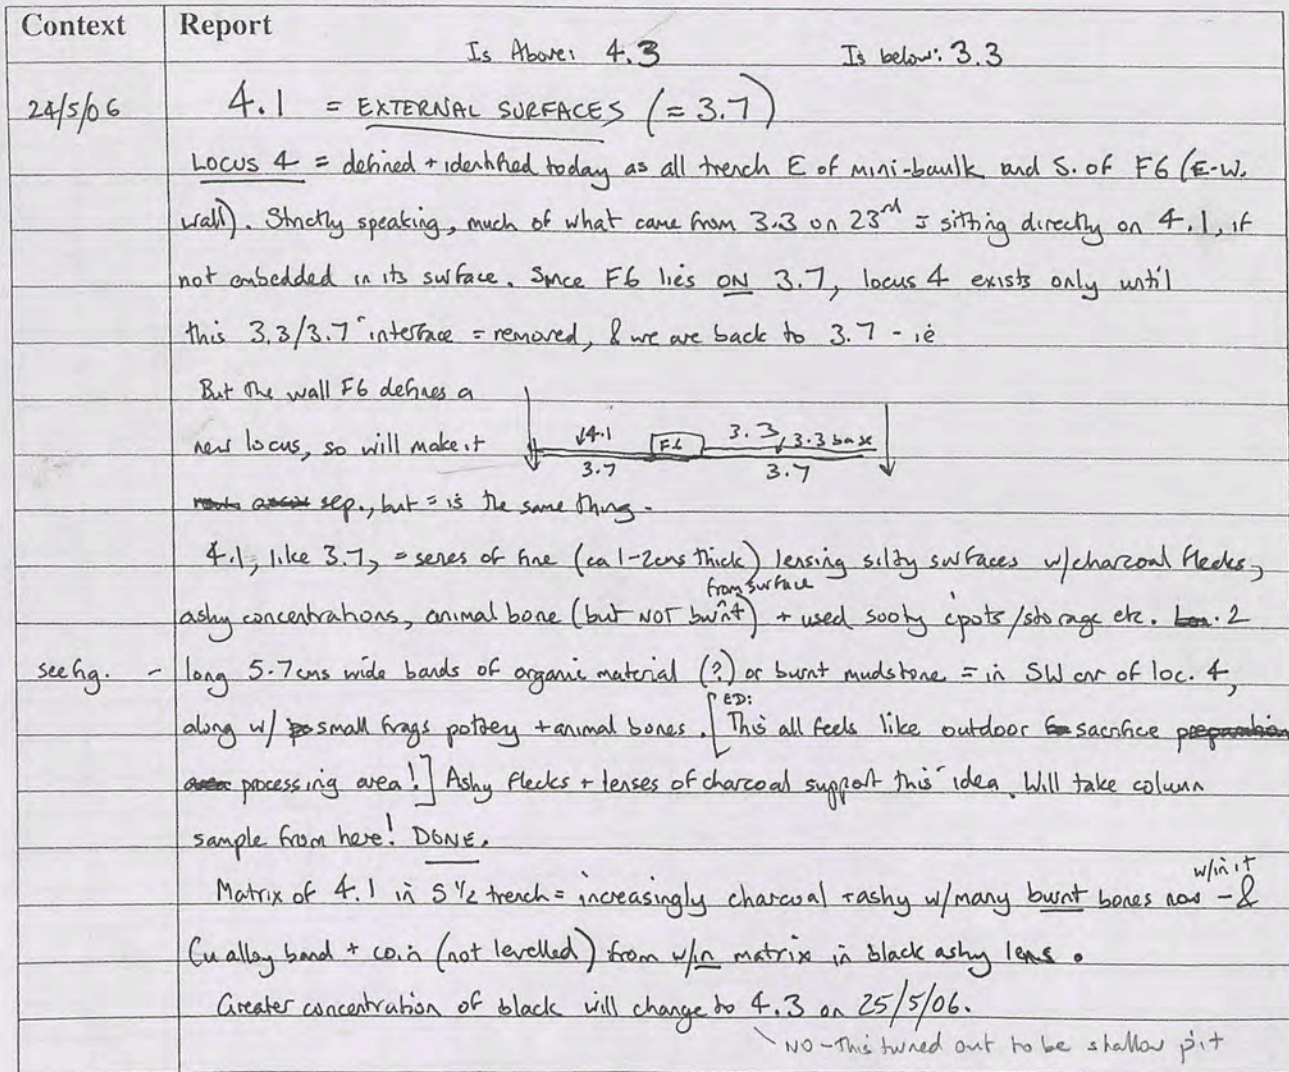 Context Report
Is Above: 4.3 Is below: 3.3
24/5/06 4.1 = EXTERNAL SURFACES (= 3.7)
Locus 4 = defined + identified today as all trench E of mini-baulk and S. of F6 (E-W.
wall). Strictly speaking, much of what came from 3.3 on 23rd = sitting directly on 4.1, if
not embedded in its surface. Since F6 lies ON 3.7, locus 4 exists only until
this 3.3/3.7 interface = removed, & we are back to 3.7 - ie
But the wall F6 defines a
new locus, so will make it
4.1 F6 3.3 3.3 base
3.7 3.7
sep., but = is the same thing -
4.1, like 3.7, = series of fine (ca 1-2cms thick) lensing silty surfaces w/charcoal flecks,
from surface
ashy concentrations, animal bone (but NOT burnt) + used sooty cpots/storage etc. 2
see fig. - long 5-7cms wide bands of organic material (?) or burnt mudstone = in SW cnr of loc. 4,
along w/ small frags pottery + animal bones. [ED: This all feels like outdoor sacrifice preparation
processing area!] Ashy flecks + lenses of charcoal support this idea. Will take column
sample from here! DONE.
Matrix of 4.1 in S 1/2 trench = increasingly charcoal + ashy w/many burnt bones now w/in it - &
Cu alloy band + coin (not levelled) from w/in matrix in black ashy lens.
Greater concentration of black will change to 4.3 on 25/5/06.
NO - This turned out to be shallow pit